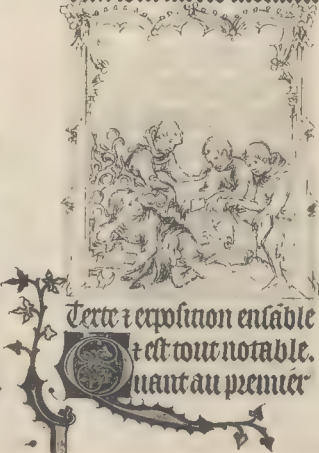 Texte ⁊ exposition ensa̅ble
⁊ est tout notable.
Quant au premier